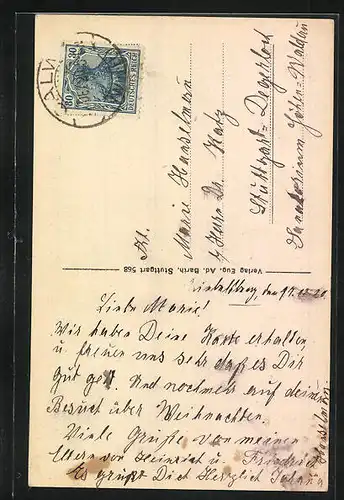 30
DEUTSCHES REICH
30
Frl.
Marie Haasselmeru
p/ Herrn Dr. Katz
Stuttgart-Degerloch
Sanatorium
Verlag Eug. Ad. Barth, Stuttgart 568
den 17.
Liebe Marie!
Wir haben Deine Karte erhalten
u. freuen uns sehr daß es Dir
gut geht. Und nochmels auf deinen
Besuch über Weihnachten.
Viele Grüße von meinen
Eltern von Heinrich u. Friedrich
Es grüßt Dich Herzlich Johana